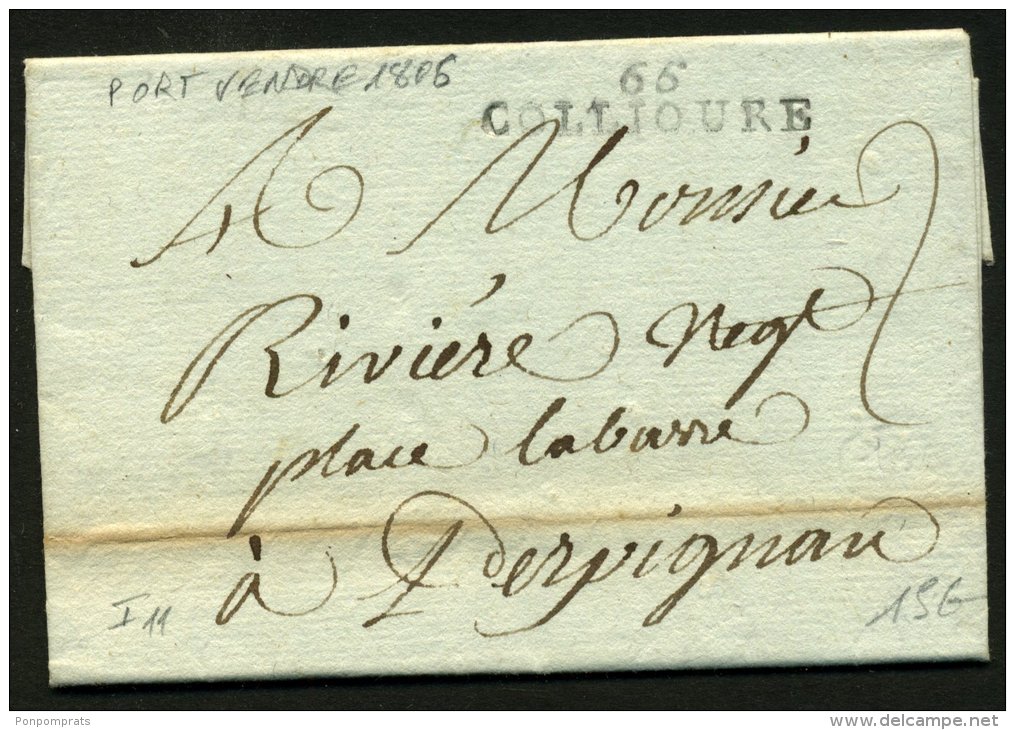 PORT VENDRE 1806
66
COLLIOURE
A Monsieur
Rivière Negt
place labarre
à Perpignan
I 11
15€
Ponpomprats
delcampe.net